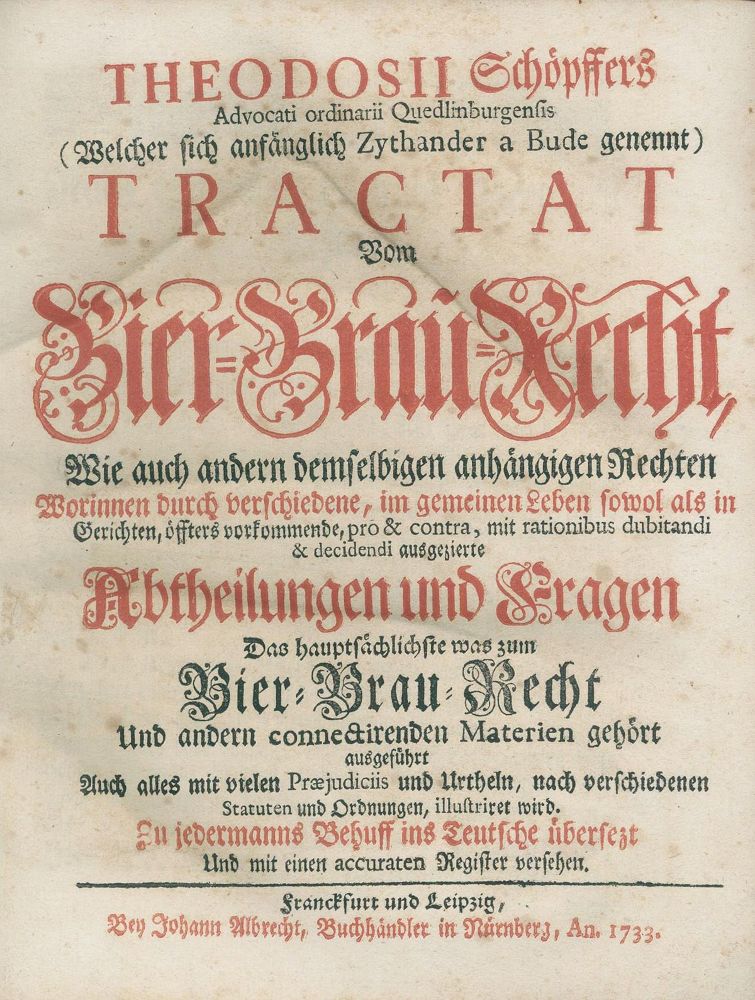 THEODOSII Schöpffers
Advocati ordinarii Quedlinburgensis
(Welcher sich anfänglich Zythander a Bude genennt)
TRACTAT
Vom
Bier-Brau-Recht,
Wie auch andern demselbigen anhängigen Rechten
Worinnen durch verschiedene, im gemeinen Leben sowol als in
Gerichten, öffters vorkommende, pro & contra, mit rationibus dubitandi
& decidendi ausgezierte
Abtheilungen und Fragen
Das hauptsächlichste was zum
Bier-Brau-Recht
Und andern connectirenden Materien gehört
ausgeführt
Auch alles mit vielen Præjudiciis und Urtheln, nach verschiedenen
Statuten und Ordnungen, illustriret wird.
Zu jedermanns Behuff ins Teutsche übersezt
Und mit einen accuraten Register versehen.
Franckfurt und Leipzig,
Bey Johann Albrecht, Buchhändler in Nürnberg, An. 1733.